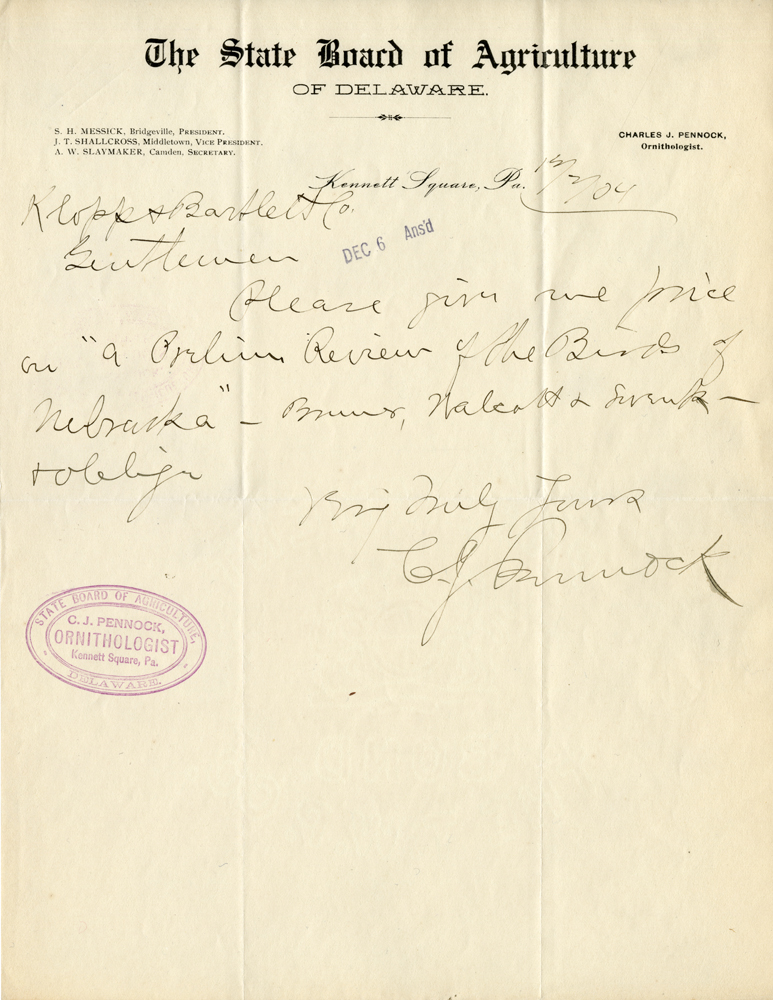 The State Board of Agriculture
OF DELAWARE.
S. H. MESSICK, Bridgeville, PRESIDENT.
J. T. SHALLCROSS, Middletown, VICE PRESIDENT.
A. W. SLAYMAKER, Camden, SECRETARY.
CHARLES J. PENNOCK,
Ornithologist.
Kennett Square, Pa. 12/2/04
Klopp & Bartlett Co.
DEC 6 Ans'd
Gentlemen
Please give me price
on "A Prelim. Review of the Birds of
Nebraska" - Bruner, Walcott & Swenk -
& oblige
Very Truly Yours
C.J. Pennock
STATE BOARD OF AGRICULTURE,
C. J. PENNOCK,
ORNITHOLOGIST
Kennett Square, Pa.
DELAWARE.